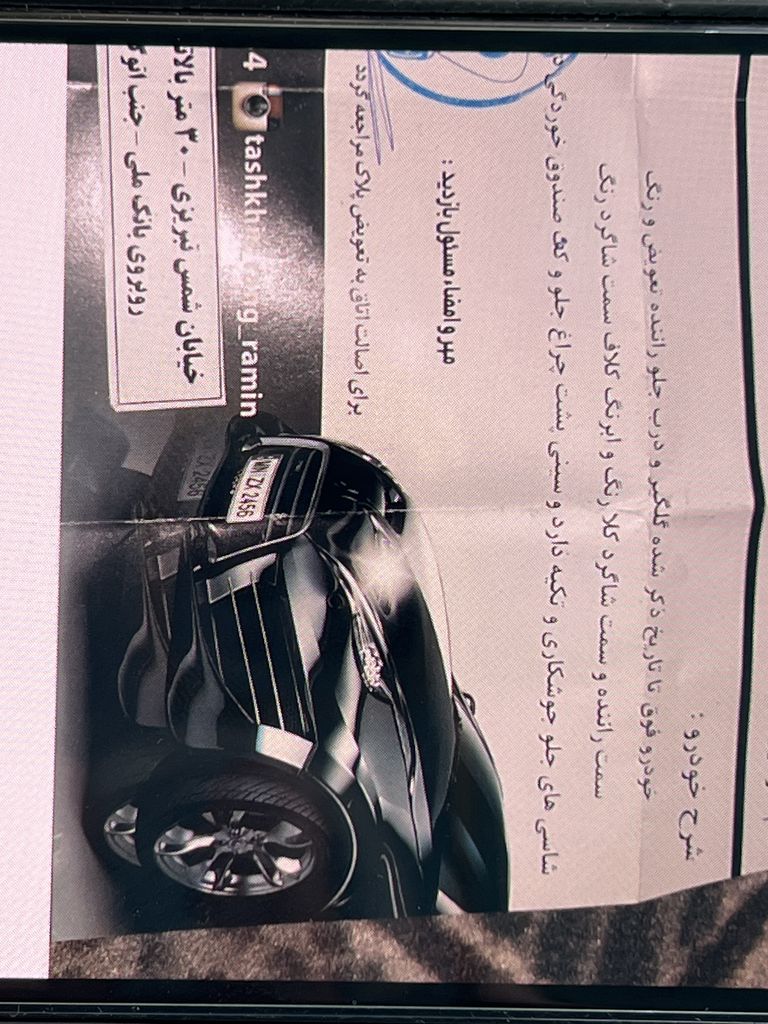 شرح خودرو :
خودرو فوق تا تاریخ ذکر شده گلگیر و درب جلو راننده تعویض و رنگ
سمت راننده و سمت شاگرد کلا رنگ و ابرنگ کلاف سمت شاگرد رنگ
شاسی های جلو جوشکاری و تکیه دارد و سینی پشت چراغ جلو و کف صندوق خوردگی
مهر و امضاء مسئول بازدید :
برای اصالت اتاق به تعویض پلاک مراجعه گردد
4
_ramin
MN ZX 2456
خیابان شمس تبریزی - ۳۰ متر بالاتر
روبروی بانک ملی - جنب